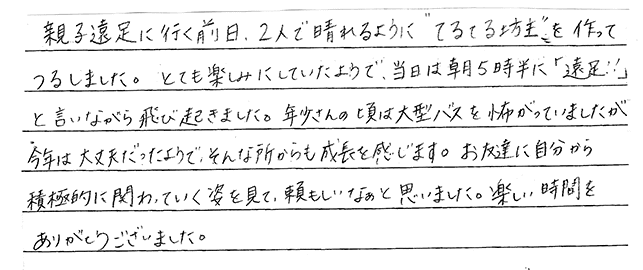 親子遠足に行く前日、2人で晴れるように"てるてる坊主"を作って
つるしました。とても楽しみにしていたようで、当日は朝5時半に「遠足!!」
と言いながら飛び起きました。年少さんの頃は大型バスを怖がっていましたが
今年は大丈夫だったようで、そんな所からも成長を感じます。お友達に自分から
積極的に関わっていく姿を見て、頼もしいなぁと思いました。楽しい時間を
ありがとうございました。